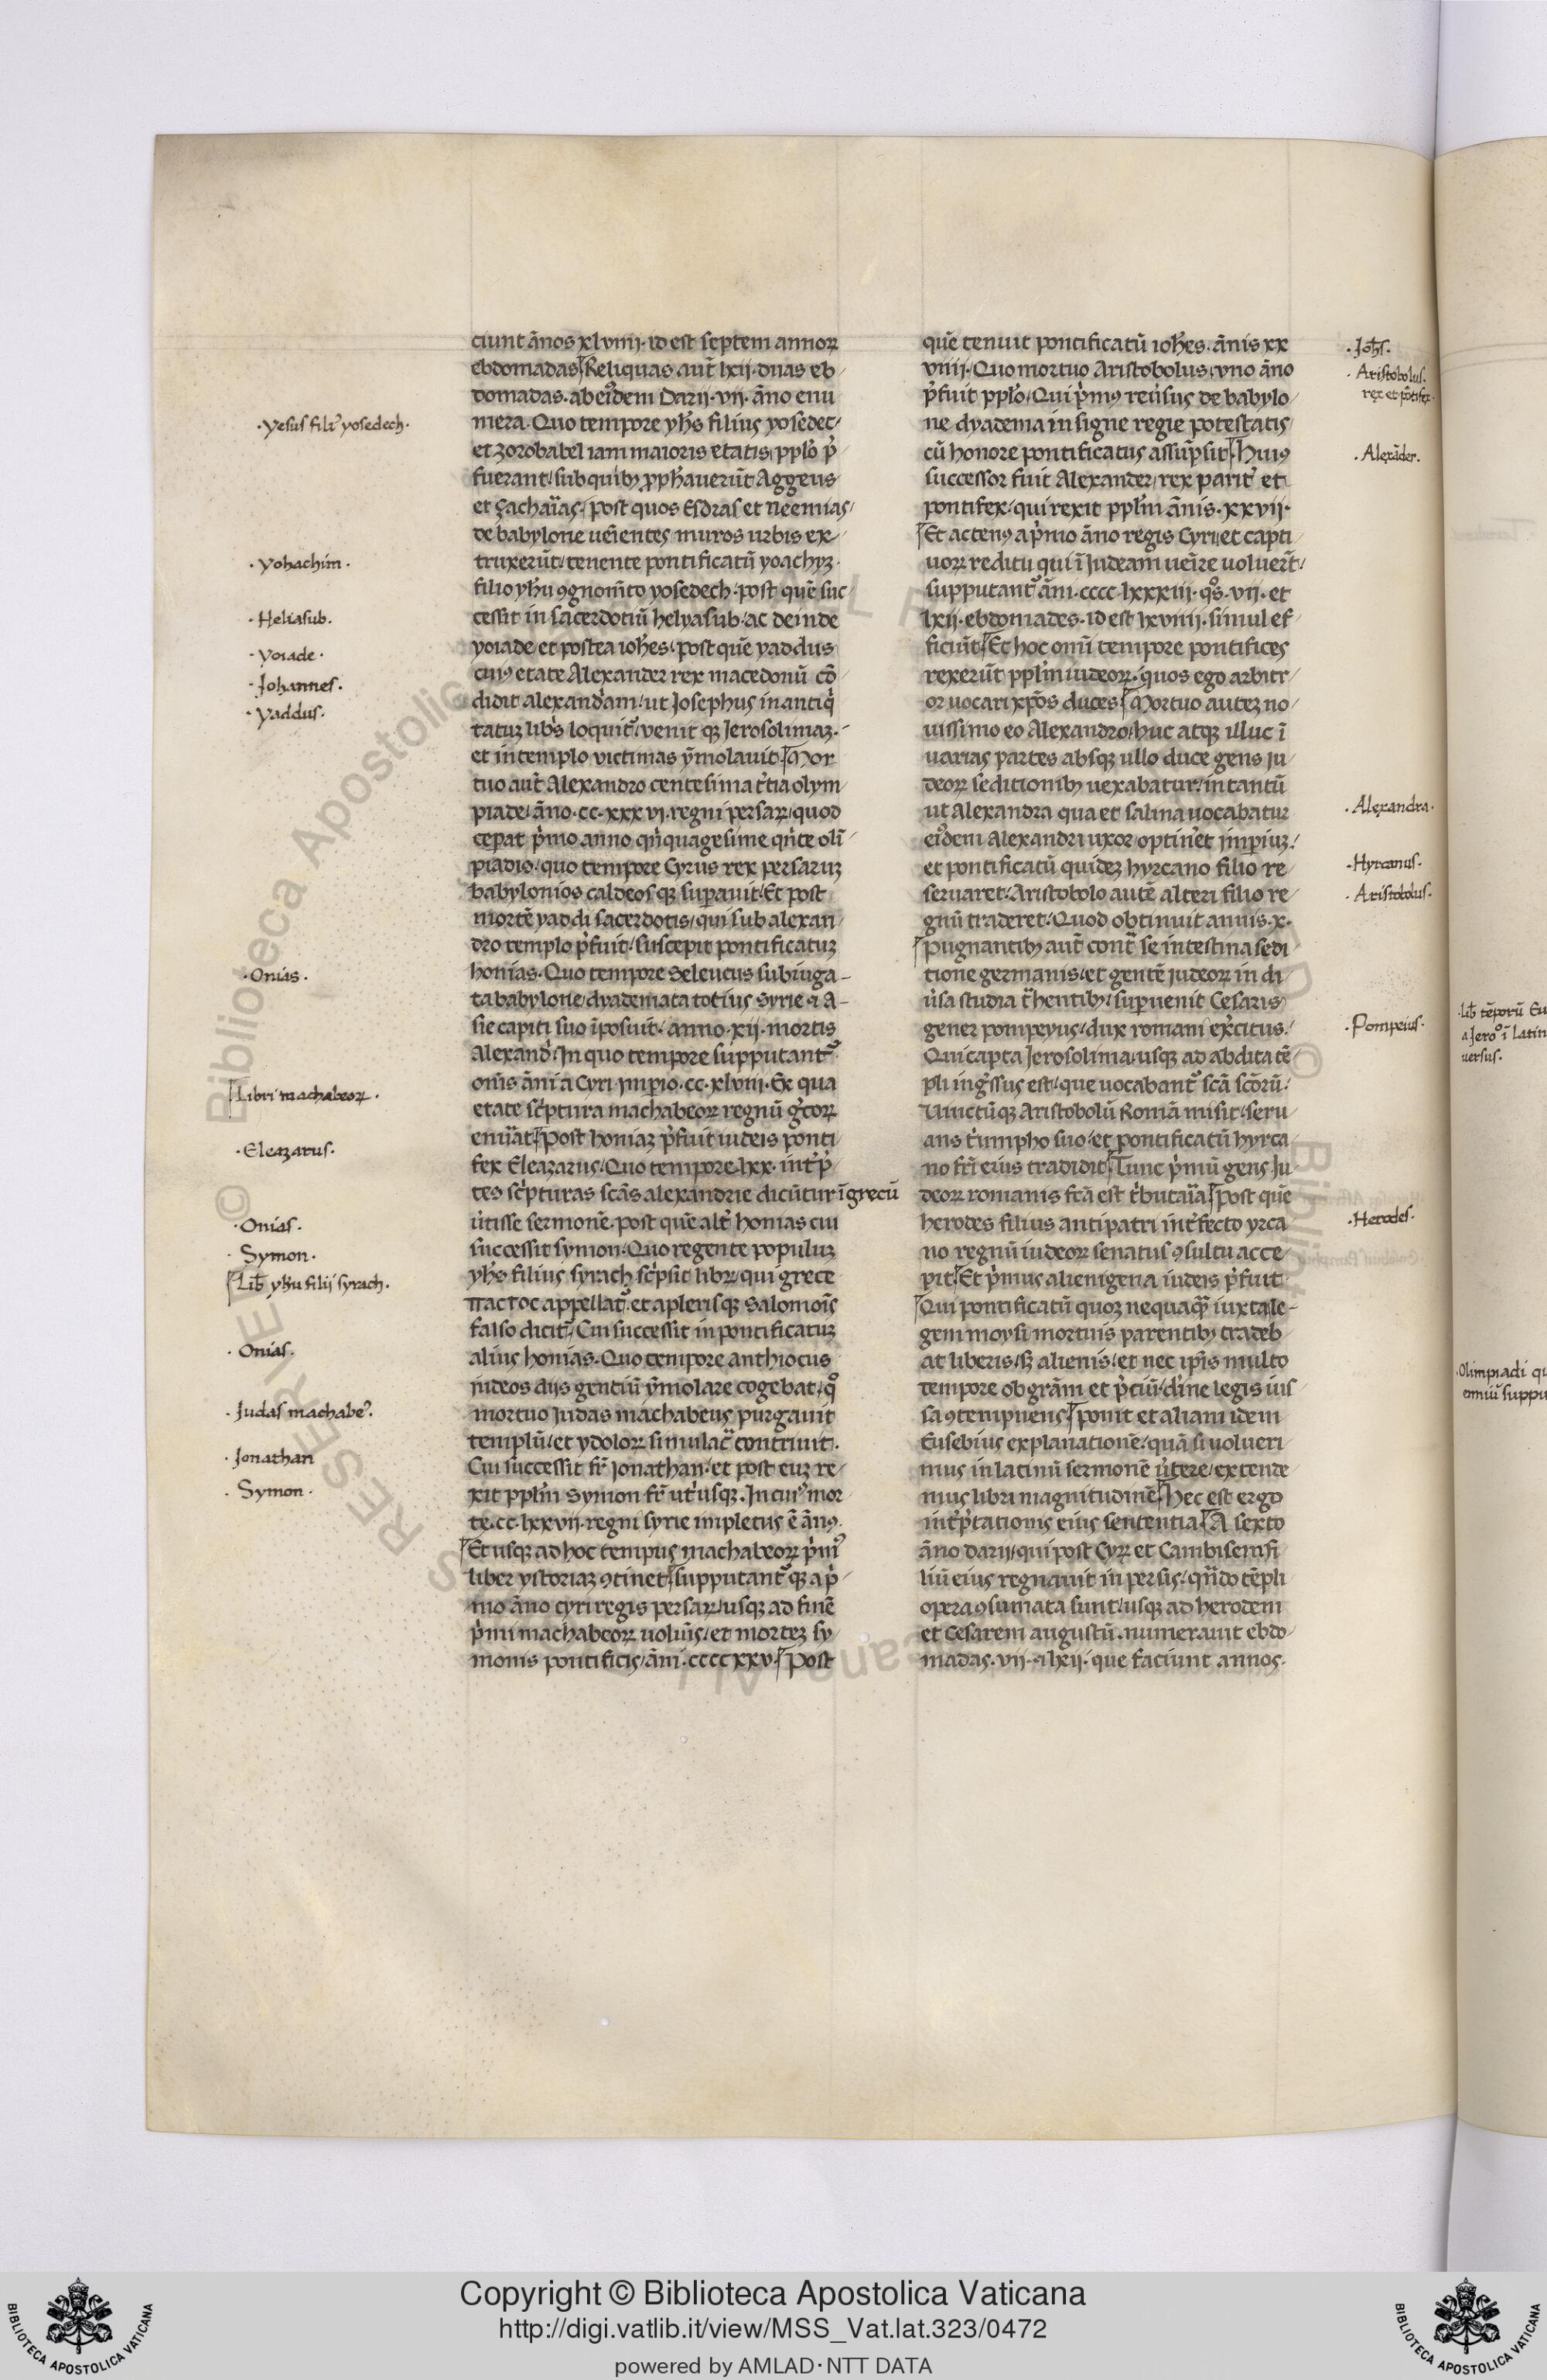 ciunt ãnos xlviiii· id est septem annoꝝ
ebdomadas Reliquas aut̃ lxii· duas eb
domadas· ab eiꝰdem Darii· vii· ãno enu
mera· Quo tempore yh̃s filius yosedec
et zorobabel iam maioris etatis pplo p̃
fuerant sub quibꝫ ꝓph̃auerũt Aggeus
et çacharias· post quos Esdras et neemias
de babylone ueñientes muros urbis ex
truxerũt tenente pontificatũ yoachyꝫ
filio yh̃u ꝯgnoĩto yosedech· post quẽ suc
cessit in sacerdotiũ helyasub· ac deinde
yoiade et postea ioh̃es post quẽ yaddus
cuiꝰ etate Alexander rex macedonũ cõ
didit alexandriam ut Josephus in antiq̃
tatuꝫ libris loquit᷑ venit qꝫ Jerosolimaꝫ·
et in templo victimas ymolauit· Mor
tuo aut̃ Alexandro centesima t̃tia olym
piade ãno· cc· xxx vi· regni persaꝝ quod
cep̃at p̃mo anno q̃nquagesime q̃nte oli
piadis quo tempore Cyrus rex persaruꝫ
babylonios caldeos qꝫ sup̃auit Et post
mortẽ yaddi sacerdotis qui sub alexan
dro templo p̃fuit suscepit pontificatuꝫ
honias· Quo tempore Seleucus subiuga
ta babylone dyademata totius Syrie ⁊ A
sie capiti suo ĩposuit· anno· xii· mortis
Alexand̃· In quo tempore supputant᷑
om̃s ãni a Cyri imperio· cc· xlviii· Ex qua
etate sc̃ptura machabeoꝝ regnũ g̃coꝝ
enũat Post honiaꝫ p̃fuit iudeis ponti
fex Eleazarus Quo tempore lxx· int̃p̃
tes sc̃pturas scãs alexandrie dicũtur ĩ grecũ
ũtisse sermonẽ· post quẽ alt̃ honias cui
successit symon· Quo regente populuꝫ
yh̃s filius syrach sc̃psit libꝝ qui grece
πατοс appellat᷑· et a plerisqꝫ Salomoĩs
falso dicit᷑ Cui successit in pontificatuꝫ
alius honias· Quo tempore anthiocus
iudeos diis gentiũ ymolare cogebat qͦ
mortuo Judas machabeus purgauit
templũ et ydoloꝝ simulac̃ contriuit·
Cui successit fr̃ Jonathan et post euꝫ re
xit ppl̃m Symon fr̃ utriusqꝫ· In cuiꝰ mor
te· cc· lxxvii· regni syrie impletus ẽ ãnꝰ·
Et usqꝫ ad hoc tempus machabeoꝝ p̃mꝰ
liber ystoriaꝫ ꝯtinet supputant᷑ qꝫ a p̃
mo ãno cyri regis persaꝝ usqꝫ ad finẽ
p̃mi machabeoꝝ uolũis et morteꝫ sy
monis pontificis ãni· ccccxxv· Post
quẽ tenuit pontificatũ ioh̃es· ãnis xx
viiii· Quo mortuo Aristobolus vno ãno
p̃fuit pplo Qui p̃mꝰ reũsus de babylo
ne dyadema insigne regie potestatis
cũ honore pontificatus assũpsit Huiꝰ
successor fuit Alexander rex parit̃ et
pontifex qui rexit ppl̃m ãnis· xxvii·
Et actenꝰ a p̃mo ãno regis Cyri et capti
uoꝝ reditu qui ĩ Judeam uẽire uoluer̃t
supputant᷑ ãni· cccc· lxxxiii· q̃s· vii· et
lxii· ebdomades· id est lxviiii· simul ef
ficiũt Et hoc om̃i tempore pontifices
rexerũt ppl̃m iudeoꝝ· quos ego arbitr
or uocari xp̃os duces Mortuo auteꝫ no
uissimo eo Alexandro huc atqꝫ illuc ĩ
uarias partes absqꝫ ullo duce gens iu
deoꝝ seditionibꝫ uexabatur in tantũ
ut Alexandra qua et salina uocabatur
eiꝰdem Alexandri uxor optineret imperiuꝫ
et pontificatũ quideꝫ hyrcano filio re
seruaret· Aristobolo autẽ alteri filio re
gnũ traderet· Quod obtinuit annis· x·
Pugnantibꝫ aut̃ cont̃ se intestina sedi
tione germanis et gentẽ iudeoꝝ in di
ũsa studia t̃hentibꝫ sup̃uenit Cesaris
gener pompeyus dux romani ex̃citus·
Qui capta Jerosolima usqꝫ ad abdita tẽ
pli ing̃ssus est que uocabant᷑ scã scõrũ
Uinctũqꝫ Aristobolũ Romã misit seru
ans triumpho suo et pontificatũ hyrca
no fr̃i eius tradidit Tunc p̃mũ gens Ju
deoꝝ romanis fcã est t̃butaria post quẽ
herodes filius antipatri int̃fecto yrca
no regnũ iudeoꝝ senatus ꝯsultu acce
pit Et p̃mus alienigena iudeis p̃fuit
Qui pontificatũ quoꝫ nequaq̃ iuxta le
gem moysi mortuis parentibꝫ tradeb
at liberis sꝫ alienis et nec ip̃is multo
tempore ob grãm et p̃ciũ dĩne legis ius
sa ꝯtempnens Ponit et aliam idem
Eusebius explanationẽ quã si uolueri
mus in latinũ sermonẽ ũtere extende
mus libri magnitudinẽ Hec est ergo
int̃p̃tationis eius sententia A sexto
ãno darii qui post Cyꝝ et Cambisem fi
liũ eius regnauit in persis q̃ndo tẽpli
opera ꝯsumata sunt usqꝫ ad herodem
et Cesarem augustũ· numerauit ebdo
madas· vii· ⁊ lxii· que faciunt annos·
·Yesus filiꝰ yosedech·
·Yohachim·
·Heliasub·
·Yoiade·
·Johannes·
·Yaddus·
·Onias·
Libri machabeoꝝ·
·Eleazarus·
·Onias·
·Symon·
Lib̃ yh̃u filii syrach·
·Onias·
·Judas machabeꝰ·
·Jonathan
·Symon·
·Joh̃s·
·Aristobolus·
rex et põtifex·
·Alexãder·
·Alexandra·
·Hyrcanus·
·Aristobolus·
·Pompeius·
·Herodes·
·lib̃ tẽporũ Eu
a Jeroº ĩ latin
uersus·
·Olimpiadi qu
enniũ suppu
© Biblioteca Apostolica
RESER
Copyright © Biblioteca Apostolica Vaticana
http://digi.vatlib.it/view/MSS_Vat.lat.323/0472
powered by AMLAD·NTT DATA
BIBLIOTECA APOSTOLICA VATICANA
BIBLIOTECA APOSTOLICA VATICANA